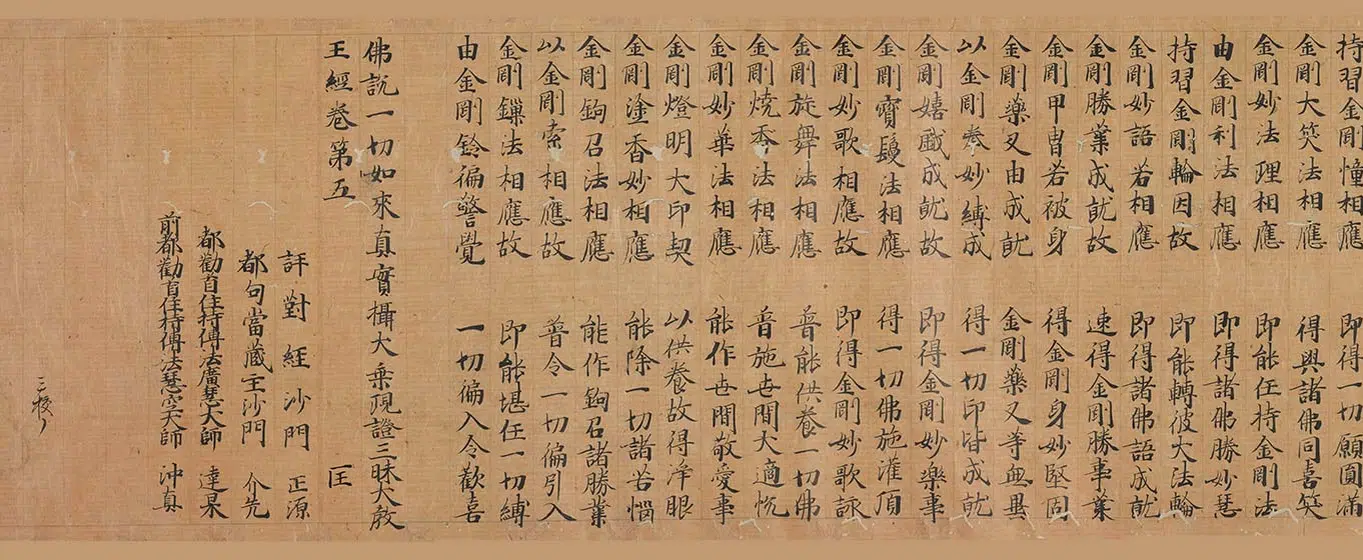 持習金剛幢相應　即得一切願圓滿
金剛大笑法相應　得與諸佛同喜笑
金剛妙法理相應　即能任持金剛法
由金剛利法相應　即得諸佛勝妙慧
持習金剛輪因故　即能轉彼大法輪
金剛妙語若相應　即得諸佛語成就
金剛勝業成就故　速得金剛勝事業
金剛甲冑若被身　得金剛身妙堅固
金剛藥叉由成就　金剛藥叉等無異
以金剛拳妙縛成　得一切印皆成就
金剛嬉戲成就故　即得金剛妙樂事
金剛寶鬘法相應　得一切佛施灌頂
金剛妙歌相應故　即得金剛妙歌詠
金剛旋舞法相應　普能供養一切佛
金剛燒香法相應　普施世間大適悅
金剛妙華法相應　能作世間敬愛事
金剛燈明大印契　以供養故得淨眼
金剛塗香妙相應　能除一切諸苦惱
金剛鉤召法相應　能作鉤召諸勝業
以金剛索相應故　普令一切徧引入
金剛鏁法相應故　即能堪任一切縛
由金剛鈴徧警覺　一切徧入令歡喜
佛說一切如來真實攝大乘現證三昧大教
王經卷第五　匡
詳對經沙門　正源
都句當藏主沙門　介先
都勸首住持傳法廣慧大師　達杲
前都勸首住持傳法慧空大師　沖真